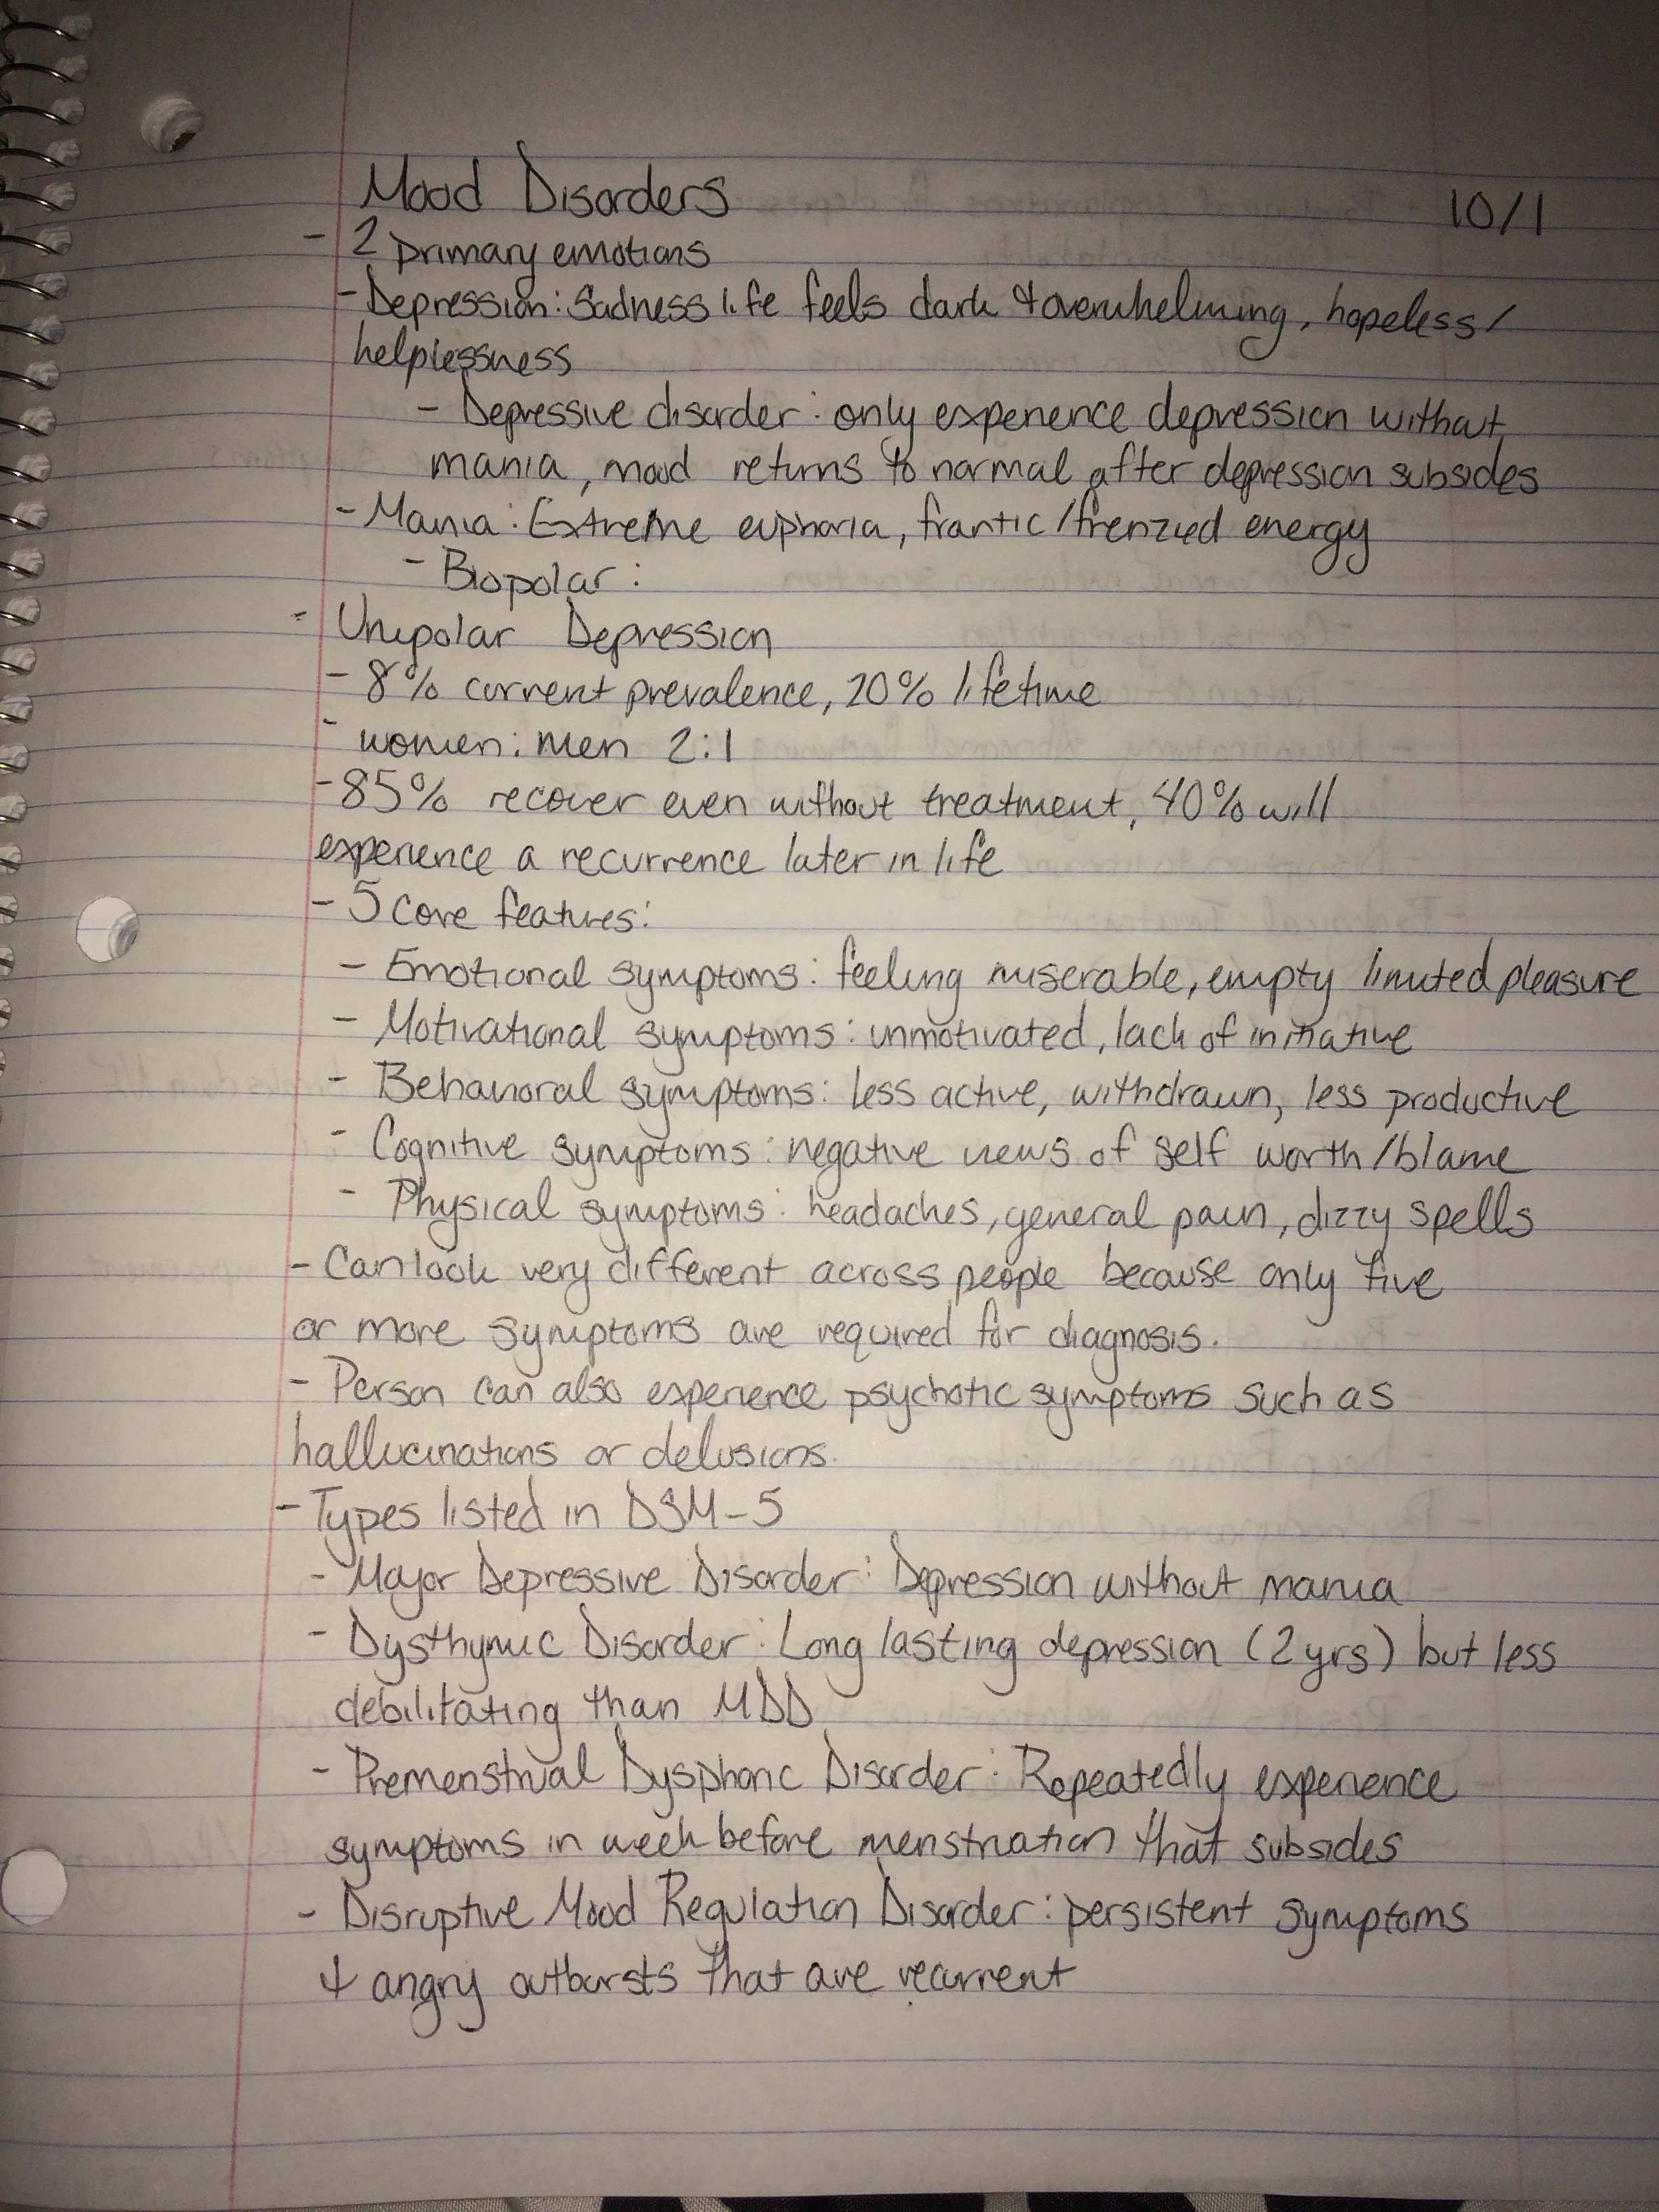 Mood Disorders 10/1
- 2 primary emotions
- Depression: Sadness life feels dark & overwhelming, hopeless/
helplessness
- Depressive disorder: only experience depression without
mania, mood returns to normal after depression subsides
- Mania: Extreme euphoria, frantic/frenzied energy
- Biopolar:
- Unipolar Depression
- 8% current prevalence, 20% lifetime
- women: men 2:1
- 85% recover even without treatment, 40% will
experience a recurrence later in life
- 5 core features:
- Emotional symptoms: feeling miserable, empty limited pleasure
- Motivational symptoms: unmotivated, lack of initiative
- Behavioral symptoms: less active, withdrawn, less productive
- Cognitive symptoms: negative views of self worth/blame
- Physical symptoms: headaches, general pain, dizzy spells
- Can look very different across people because only five
or more symptoms are required for diagnosis.
- Person can also experience psychotic symptoms such as
hallucinations or delusions.
- Types listed in DSM-5
- Major Depressive Disorder: Depression without mania
- Dysthymic Disorder: Long lasting depression (2 yrs) but less
debilitating than MDD
- Premenstrual Dysphoric Disorder: Repeatedly experience
symptoms in week before menstruation that subsides
- Disruptive Mood Regulation Disorder: persistent symptoms
& angry outbursts that are recurrent